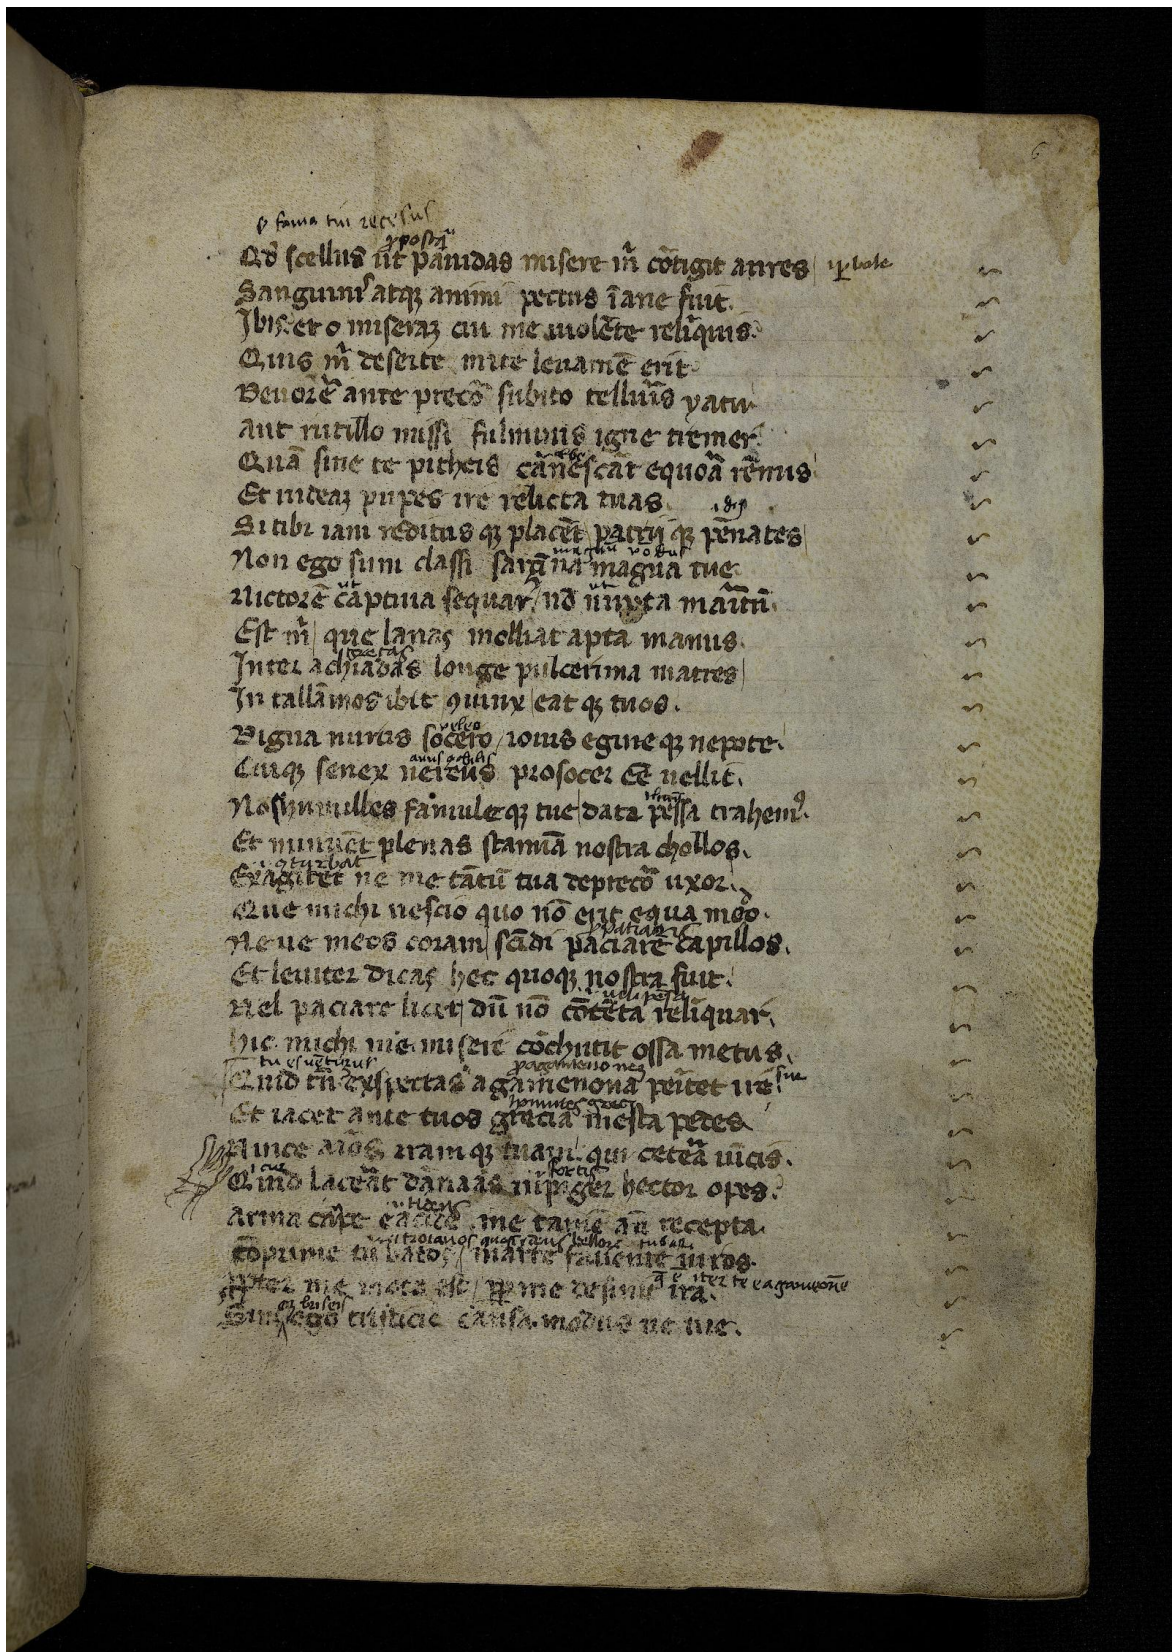 s fama tui recesus
ppostq̃
Qd̃ scellus ut pauidas misere m̃ cõtigit aures iperbole
Sanguinis atqz animi pectus iane fuit.
Ibis et o miseraz cui me uiolẽte relinquis.
Quis m̃ deserte mite leuamẽ erit
Deuorẽ ante precõ subito telluris yatu
aut rutillo missi fulminis igne cremer
Quã sine te pitheis canescãt equora remus
Et uideaz pupes ire relicta tuas
Si tibi iam reditus qz placẽt patrij qz penates
Non ego sum classi sarcina magna tue
Victorẽ captiua sequar nõ nupta maritũ.
Est m̃ que lanas molliat apta manus.
Inter achiadas longe pulcerima matres
In tallamos ibit ɔiunx eat qz tuos.
peleo
Digna nurus socero iouis egine qz nepote.
Cuiqz senex nereus prosocer eẽ uellit.
Nos humilles famule qz tue data pessa trahemꝰ.
Et minuẽt plenas stamina nostra chollos.
ɔturbat
Exagitet ne me tãtũ tua deprecor uxor.
Que michi nescio quo nõ erit equa mõ.
Neue meos coram scindi paciare capillos.
Et leuiter dicas hec quoqz nostra fuit.
Vel paciare licet dũ nõ cõtẽta relinquar.
hic michi me misere cõchutit ossa metus.
tu es uẽturus
Quid tñ exspectas agamenona penitet ire
Et iacet ante tuos grecia mesta pedes
Vince aĩos iram qz tuam qui cetera uĩcis.
fortis
Quid lacerat danaas impiger hector opes.
Arma cape eacide me tamẽ añ recepta.
cõprime turbatos marte fauente uiros.
ppter me mota est ppter me desinat ira.
Sim ego tristicie causa modus ne tue.